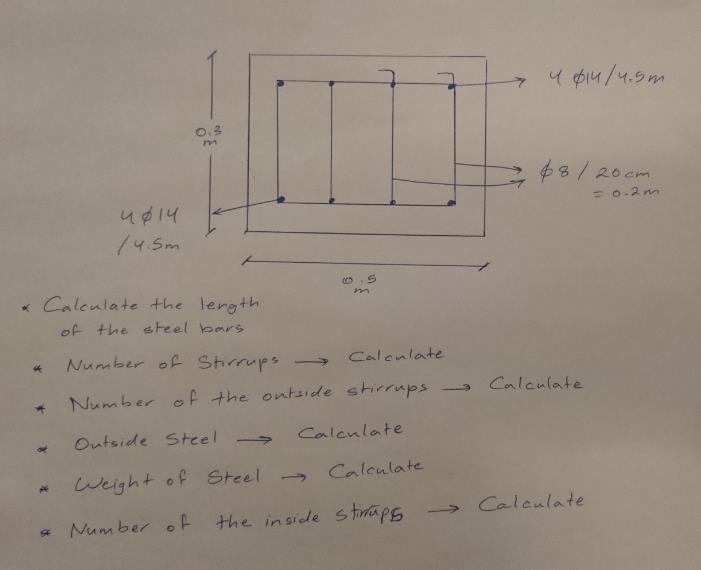 4 ϕ14/4.5m
0.3
m
ϕ8 / 20cm
= 0.2m
4ϕ14
/4.5m
0.5
m
* Calculate the length
of the steel bars
* Number of Stirrups → Calculate
* Number of the outside stirrups → Calculate
* Outside Steel → Calculate
* Weight of Steel → Calculate
* Number of the inside stirrups → Calculate